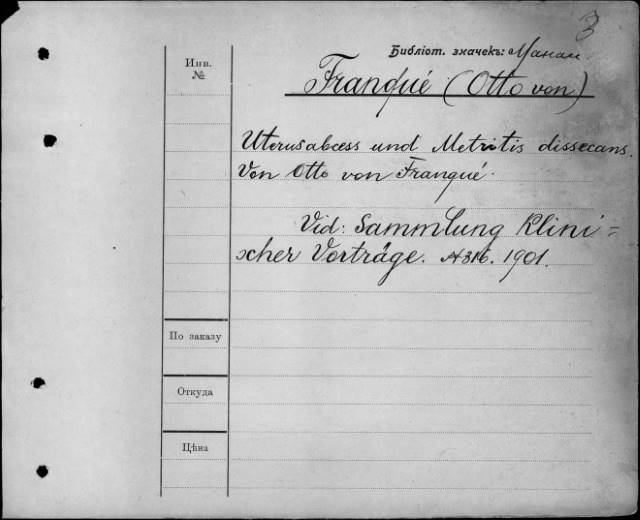 3
Библіот. значекъ:
Инв.
№
Franqué (Otto von)
Uterusabcess und Metritis dissecans.
Von Otto von Franqué.
Vid: Sammlung Klini=
scher Vorträge. №316. 1901.
По заказу
Откуда
Цѣна